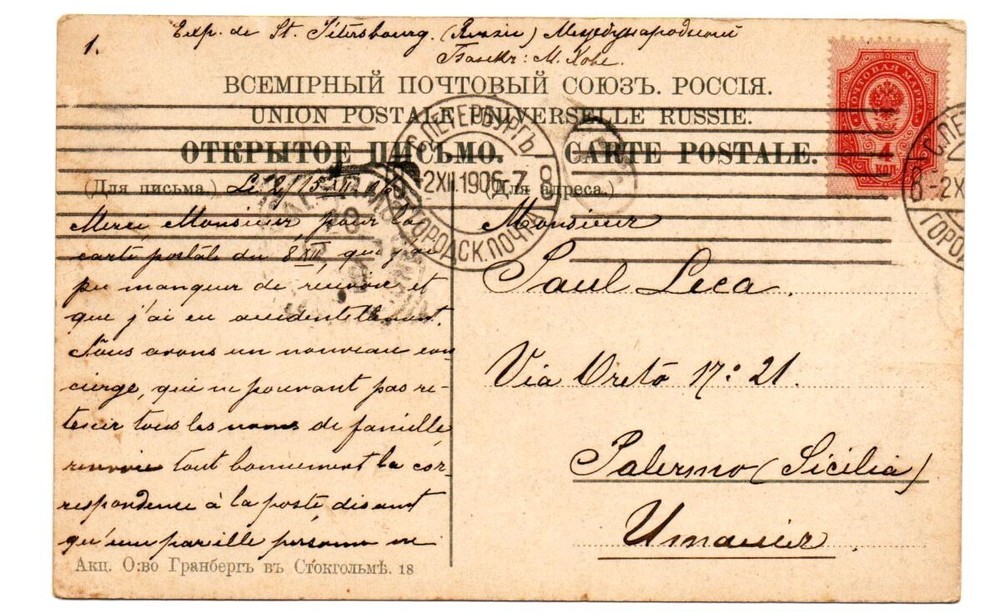 1.
Exp. de St. Pétersbourg. (Russie) Международный
Банкъ: М. Хове.
ВСЕМІРНЫЙ ПОЧТОВЫЙ СОЮЗЪ. РОССІЯ.
UNION POSTALE UNIVERSELLE RUSSIE.
ОТКРЫТОЕ ПИСЬМО. CARTE POSTALE.
(Для письма.) (Для адреса.)
С.ПЕТЕРБУРГЪ
8 -2XII.1906-7 8
ГОРОДСК.ПОЧТА
ПОЧТОВАЯ МАРКА
4
КОП.
Le 2/15 XII
Merci Monsieur, pour la
carte postale du 8 XII, qui
pu manquer de revenir et
que j'ai eu accidentellement.
Nous avons un nouveau con
cierge, qui ne pouvant pas re-
tenir tous les noms de famille
renvoie tout bonnement la cor-
respondence à la poste disant
qu'une pareille personne ne
Monsieur
Paul Leca.
Via Oreto Nº 21.
Palermo (Sicilia)
Италия.
Акц. О:во Гранбергъ въ Стокгольмѣ. 18